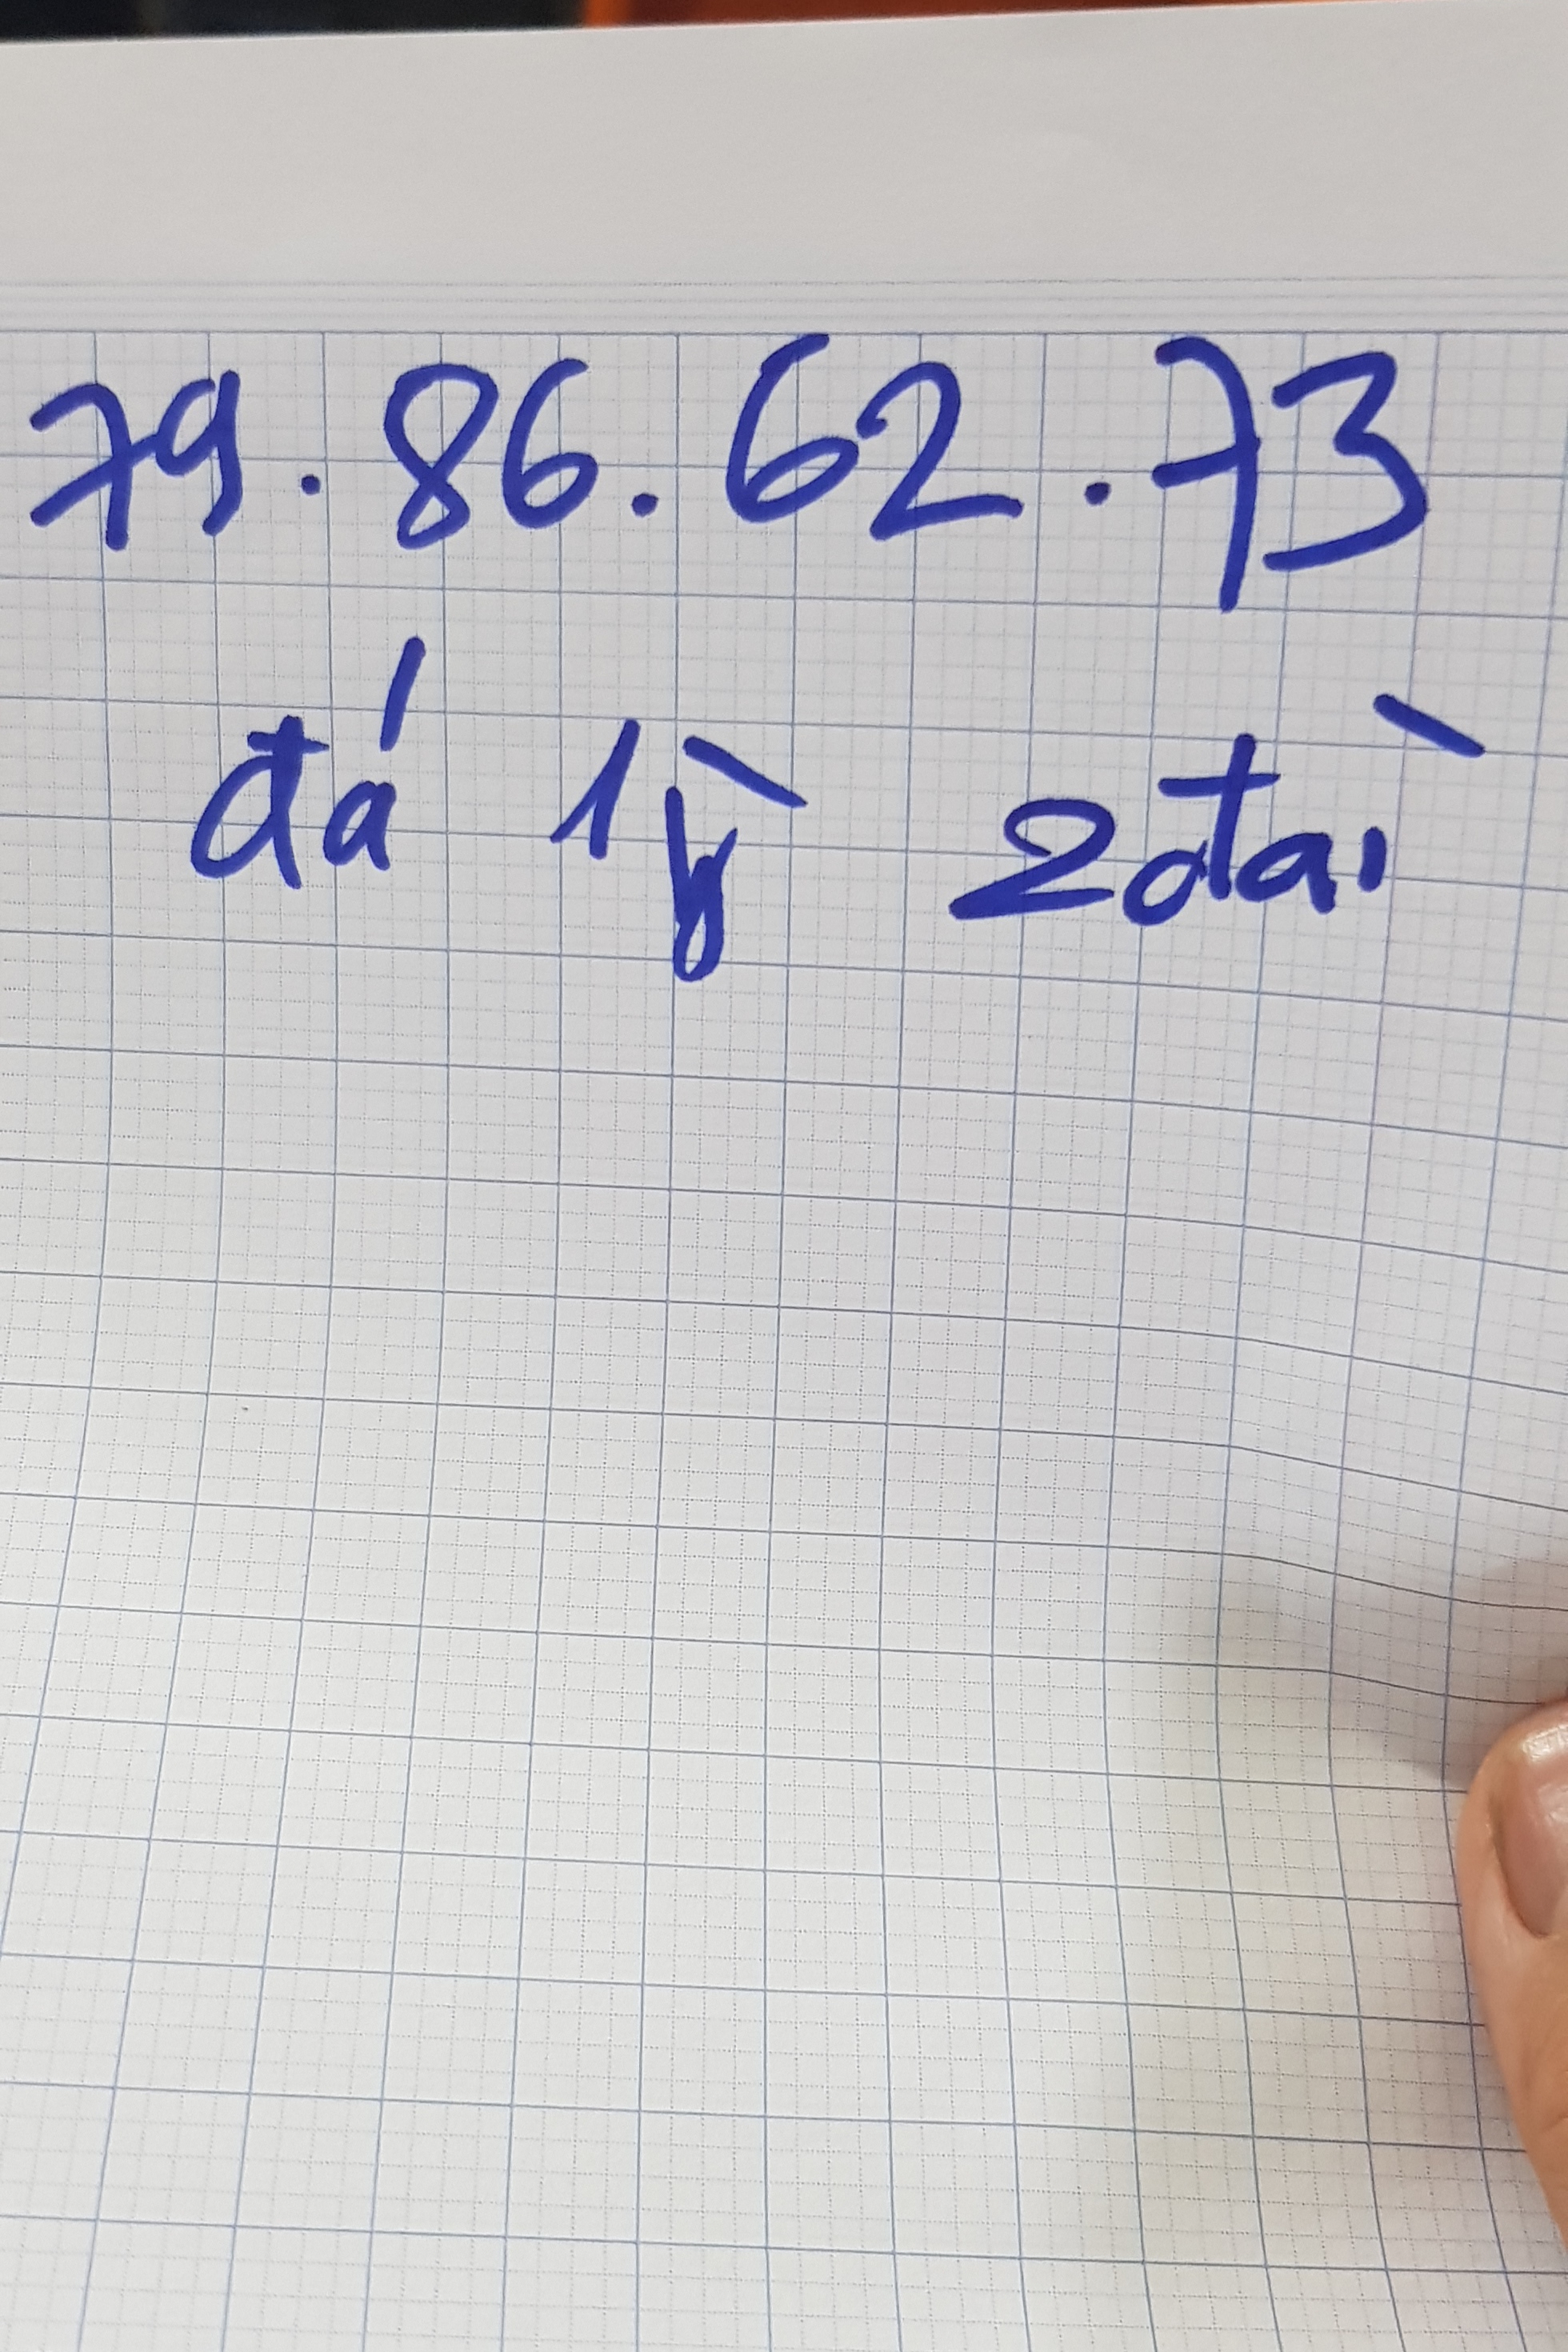 79.86.62.73
đá 1ỳ 2đài